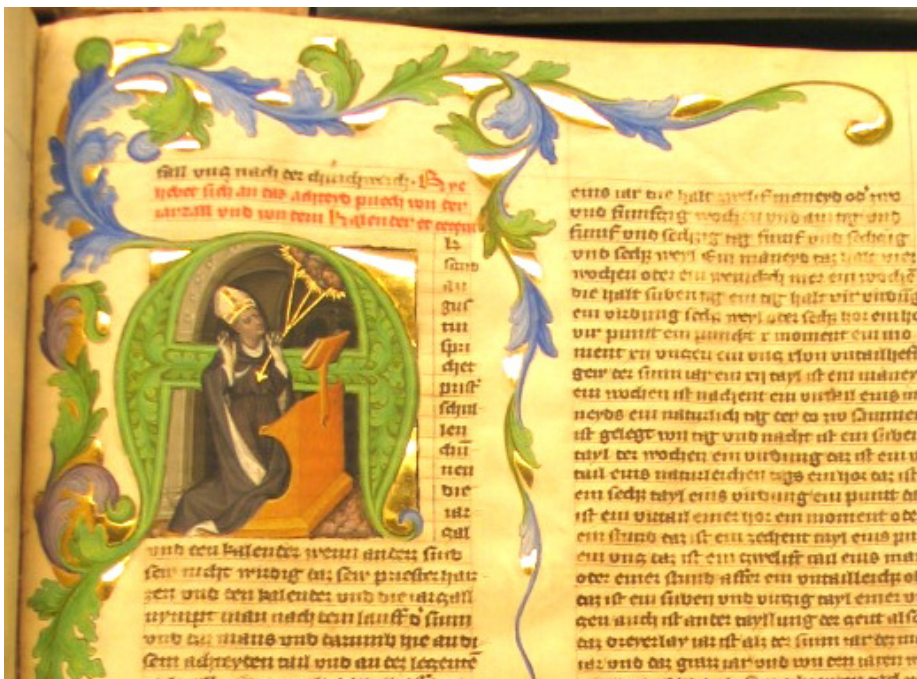 tail vnd nach der chirichweich. Hye
hebet sich an das achteyd puech von der
iarzall vnd von dem Kalender
sand
au
gus
tin
spri
chet
prist
schul
len
chu
nen
die
iar
zal
vnd den kalender wenn ander sind
sew nicht wirdig daz sew priester haiz
zen vnd den kalender vnd die iarzall
nympt man nach dem lauff d sunn
vnd daz mans vnd darumb hie an di
sem achteyden tail vnd an der legente
eins iar die halt zwelif maneyd od zwo
vnd fumfczig wochen vnd ain tag vnd
fumf vnd sechzig tag fumf vnd sechzig
vnd sechs weyl Ein maneyd daz halt vier
wochen oder ein wenichch mer ein woche
die halt siben tag ein tag halt vir virdung
ein virdung sechs weyl oder sechs hor ein ho
vir punt ein puncht x moment ein mo
ment xii vnczen ein vncz
der sunn iar ein xii tayl ist ein maney
ein wochen ist ein virtail eins m
neyds ein naturlich tag
ist gelegt von tag vnd nacht ist ein siben
tayl der wochen ein virdung daz ist ein v
tail eins naturleichen tags ein hor daz ist
ein sechs tayl eins virdung ein puntt da
ist ein virtail einer hor ein moment ode
ein stund daz ist ein zechent tayl eins pu
ein vncz daz ist ein zwelift tail eins ma
oder einer stund
daz ist ein siben vnd virzig tayl einer v
gen auch ist ander tayllung der zeit also
daz dreyerlay iar ist als der sunn iar der m
iar vnd daz grazz iar vnd von den iaren w